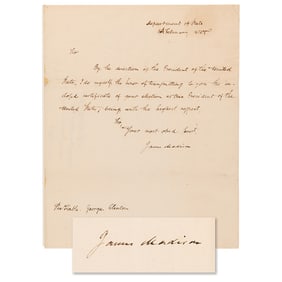 Department of State
February
Sir
By the direction of the President of the United
States, I do myself the honor of transmitting to you the in-
closed certificate of your election as Vice President of the
United States; being with the highest respect,
Sir,
Your most obed. Servt.
James Madison
George Clinton
James Madison